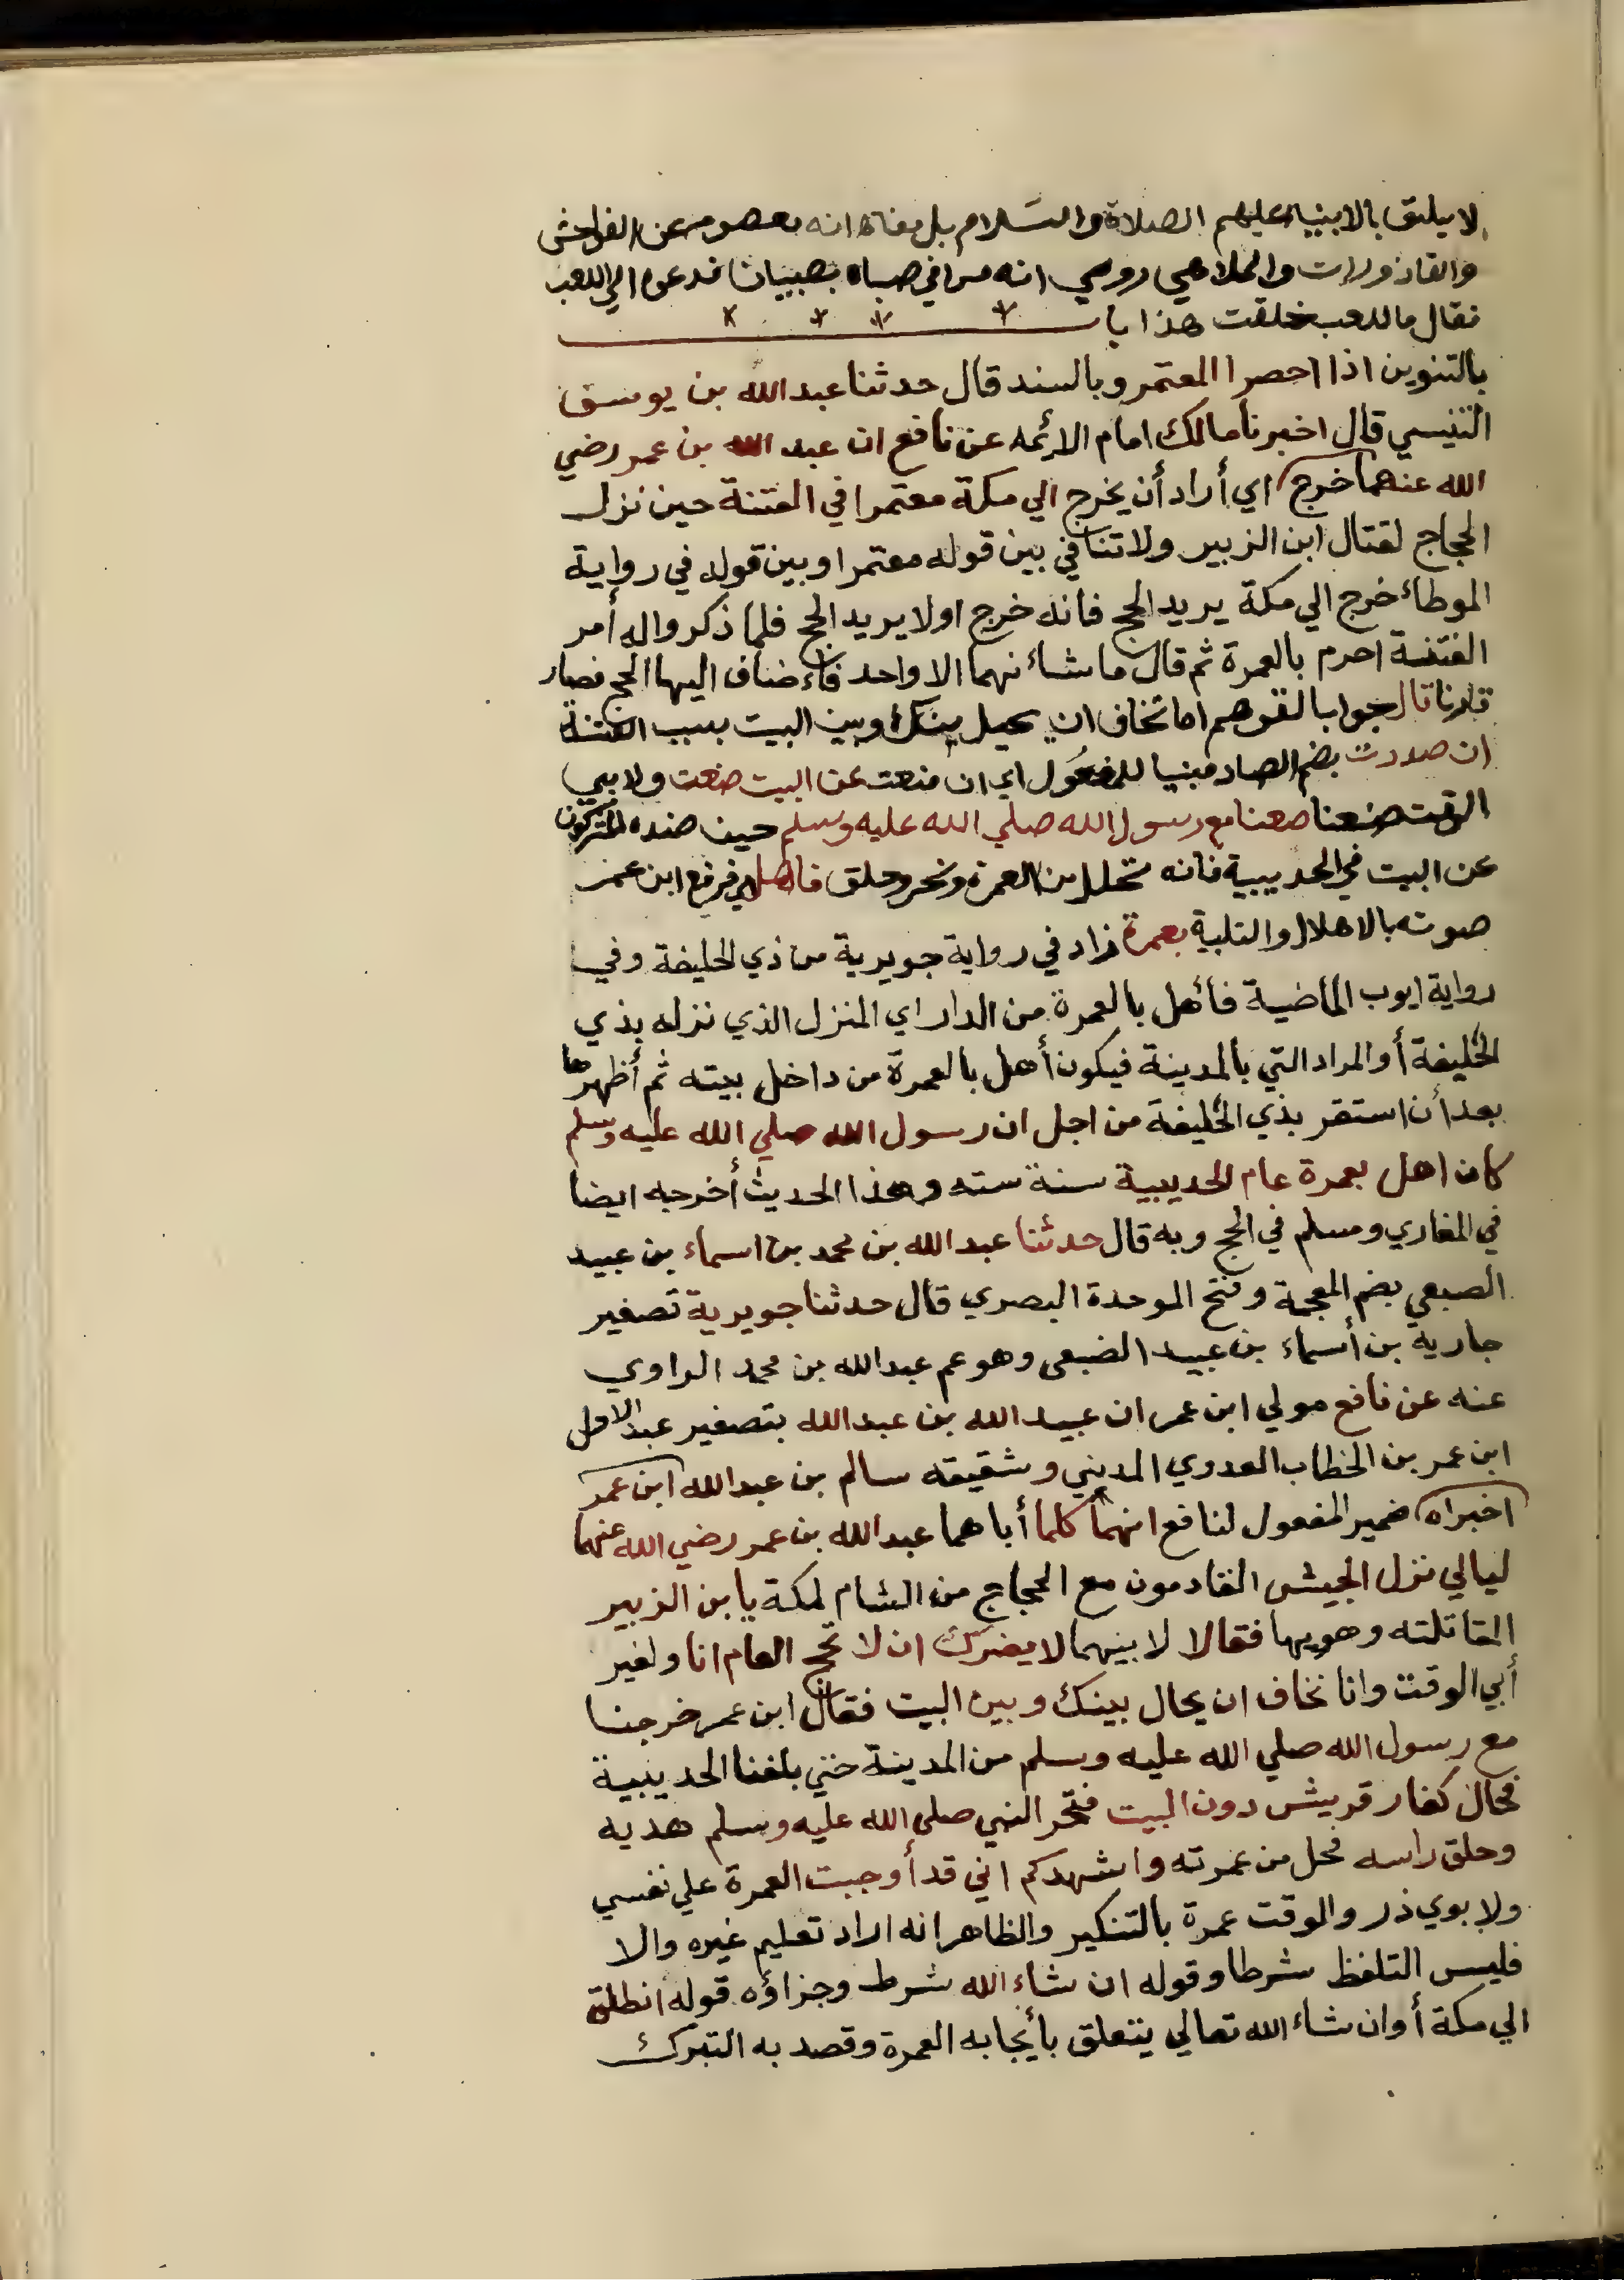 لا يليق بالانبياء عليهم الصلاة والسلام بل معناه انه معصوم عن الفواحش
والقاذورات والملاهي روي انه مر في صباه بصبيان فدعوه الي اللعب
فقال ما للعب خلقت هذا باب
بالتنوين اذا احصر المعتمر وبالسند قال حدثنا عبد الله بن يوسف
التنيسي قال اخبرنا مالك امام الائمه عن نافع ان عبد الله بن عمر رضي
الله عنهما خرج اي أراد أن يخرج الي مكة معتمرا في الفتنة حين نزل
الحجاج لقتال ابن الزبير ولا تنافي بين قوله معتمرا وبين قوله في رواية
الموطاء خرج الي مكة يريد الحج فانه خرج اولا يريد الحج فلما ذكروا له أمر
الفتنة احرم بالعمرة ثم قال ما شانهما الا واحد فاضاف اليها الحج فصار
قارنا قال جوابا لقولهم اما تخاف ان يحيل بينك وبين البيت بسبب الفتنة
ان صددت بضم الصاد مبنيا للمفعول اي ان منعت عن البيت صنعت ولابي
الوقت صنعنا صعنا مع رسول الله صلي الله عليه وسلم حين صده المشركون
عن البيت في الحديبية فانه تحلل من العمرة ونحر وحلق فاهل اي فرفع ابن عمر
صوته بالاهلال والتلبية بعمرة زاد في رواية جويرية من ذي الحليفة وفي
رواية ايوب الماضية فأهل بالعمرة من الدار اي المنزل الذي نزله بذي
الحليفة أو المراد التي بالمدينة فيكون أهل بالعمرة من داخل بيته ثم أظهرها
بعد أن استقر بذي الحليفة من اجل ان رسول الله صلي الله عليه وسلم
كان اهل بعمرة عام الحديبية سنة سته وهذا الحديث أخرجه ايضا
في المغازي ومسلم في الحج وبه قال حدثنا عبد الله بن محمد بن اسماء بن عبيد
الصبعي بضم المعجمة وفتح الموحدة البصري قال حدثنا جويرية تصغير
جارية بن أسماء بن عبيد الضبعي وهو عم عبد الله بن محمد الراوي
عنه عن نافع مولي ابن عمر ان عبيد الله بن عبد الله بتصغير عبد الاول
ابن عمر بن الخطاب العدوي المديني وشقيقه سالم بن عبد الله ابن عمر
اخبراه ضمير المفعول لنافع انهما كلما أباهما عبد الله بن عمر رضي الله عنهما
ليالي نزل الجيش القادمون مع الحجاج من الشام لمكة يابن الزبير
المقاتلته وهو بها فقالا لابيهما لا يضرك ان لا تحج العام انا ولغير
أبي الوقت وانا نخاف ان يحال بينك وبين البيت فقال ابن عمر خرجنا
مع رسول الله صلي الله عليه وسلم من المدينة حتي بلغنا الحديبية
فحال كفار قريش دون البيت فنحر النبي صلي الله عليه وسلم هديه
وحلق راسه فحل من عمرته واشهدكم اني قد أوجبت العمرة علي نفسي
ولابوي ذر والوقت عمرة بالتنكير والظاهر انه اراد تعليم غيره والا
فليس التلفظ شرطا وقوله ان شاء الله شرط وجزاؤه قوله انطلق
الي مكة أو ان شاء الله تعالي يتعلق بأيجابه العمرة وقصد به التبرك